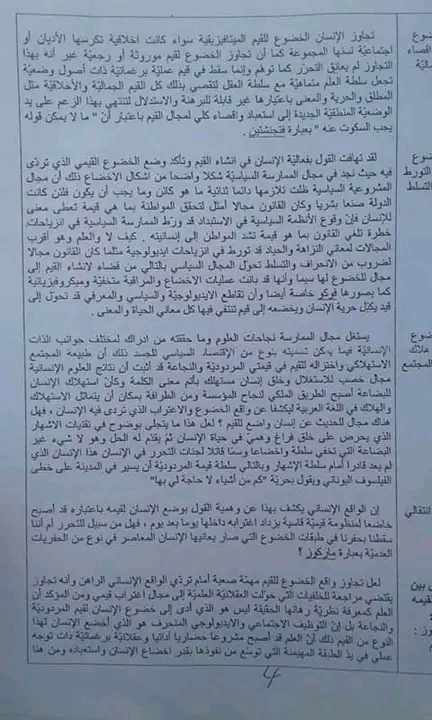 تجاوز الإنسان الخضوع للقيم الميتافيزيقية سواء كانت اخلاقية تكرسها الأديان أو
اجتماعية تسنها المجموعة كما أن تجاوز الخضوع لقيم موروثة أو رجعية غير أنه بهذا
التجاوز لم يعانق التحرر كما توهم وإنما سقط في قيم عملية برغماتية ذات أصول وضعية
تجعل سلطة العلم متماهية مع سلطة العقل لتقصي بذلك كل القيم الجمالية والأخلاقية مثل
المطلق والحرية والمعنى باعتبارها غير قابلة للبرهنة والاستدلال لتنتهي بهذا الزعم على يد
الوضعية المنطقية الجديدة إلى استعباد وإقصاء كلي لمجال القيم باعتبار أن " ما لا يمكن قوله
يجب السكوت عنه " بعبارة فتجنشتين .
لقد تهافت القول بفعالية الإنسان في انشاء القيم وتأكد وضع الخضوع القيمي الذي تردى
فيه حيث نجد في مجال الممارسة السياسية شكلا واضحا من اشكال الاخضاع ذلك أن مجال
المشروعية السياسية ظلت تلازمها دائما ثنائية ما هو كائن وما يجب أن يكون فلئن كانت
الدولة صنعا بشريا وكان القانون مجالا أمثل لتحقق المواطنة بما هي قيمة تعطي معنى
للإنسان فإن وقوع الأنظمة السياسية في الاستبداد قد ورّط الممارسة السياسية في انزياحات
خطرة تلغي القانون بما هو قيمة تشد المواطن إلى إنسانيته . كيف لا والعلم وهو أقرب
المجالات لمعاني النزاهة والحياد قد تورط في انزياحات ايديولوجية مثلما كان القانون مجالا
لضروب من الانحراف والتسلط تحول المجال السياسي بالتالي من فضاء لانشاء القيم إلى
مجال للخضوع لها سيما وأنها قد باتت عمليات الاخضاع والمراقبة متخفية وميكروفيزيائية
كما يصورها فوكو خاصة أيضا وأن تقاطع الايديولوجي والسياسي والمعرفي قد تحول إلى
قيد يكبل حرية الإنسان ويخضعه إلى قيم تنتفي فيها كل معاني الحياة والمعنى .
يستغل مجال الممارسة نجاحات العلوم وما حققته من ادراك لمختلف جوانب الذات
الإنسانية فيما يمكن تسميته بنوع من الإقتصاد السياسي للجسد ذلك أن طبيعة المجتمع
الاستهلاكي واختزاله للقيم في قيمتي المردودية والنجاعة قد أثبت أن نتائج العلوم الإنسانية
مجال خصب للاستغلال وخلق إنسان مستهلك بأتم معنى الكلمة وكأن استهلاك الإنسان
للبضاعة أصبح الطريق الملكي لنجاح المؤسسة ومن الطرافة بمكان أن يتماثل الاستهلاك
والهلاك في اللغة العربية ليكشفا عن واقع الخضوع والاغتراب الذي تردى فيه الإنسان ، فهل
هناك مجال للحديث عن إنسان واضع للقيم ؟ لعل هذا ما يتجلى بوضوح في تقنيات الاشهار
الذي يحرص على خلق فراغ وهمي في حياة الإنسان ثمّ يقدّم له الحل وهو لا شيء غير
البضاعة التي تخفي سلطة واخضاعا وسمّا قاتلا لجنات التحرر في الإنسان هذا الإنسان الذي
لم يعد قادرا أمام سلطة الإشهار وبالتالي سلطة قيمة المردودية أن يسير في المدينة على خطى
الفيلسوف اليوناني ويقول بحرية "كم من أشياء لا حاجة لي بها"
إن الواقع الإنساني يكشف بهذا عن وهمية القول بوضع الإنسان لقيمه باعتباره قد اصبح
خاضعا لمنظومة قيمية قاسية يزداد اغترابه داخلها يوما بعد يوم ، فهل من سبيل للتحرر أم أننا
سقطنا بحفرنا في طبقات الخضوع التي صار يعانيها الإنسان المعاصر في نوع من الحفريات
العدمية بعبارة ماركوز ؟
لعل تجاوز واقع الخضوع للقيم مهمّة صعبة أمام تردّي الواقع الإنساني الراهن وأنه تجاوز
يقتضي مراجعة للخلفيات التي حولت العقلانية العلمية إلى مجال اغتراب قيمي ومن المؤكد أن
العلم كمعرفة نظرية رهانها الحقيقة ليس هو الذي أدى إلى خضوع الإنسان لقيم المردودية
والنجاعة بل إن التوظيف الاجتماعي والايديولوجي المنحرف هو الذي أخضع الإنسان لهذا
النوع من القيم ذلك أن العلم قد اصبح مشروعا حضاريا أداتيا وعقلانية برغماتية ذات توجه
عملي في يد الطبقة المهيمنة التي توسّع من نفوذها بقدر اخضاع الإنسان واستعباده ومن هنا
ضوع
إقصاء
ماليّة
ضوع
التورط
التسلط
ضوع
هلاك
المجتمع
انتقالي
بين
القيمة
وز :
4